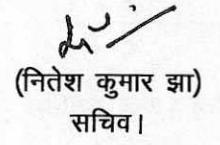 (नितेश कुमार झा)
सचिव।